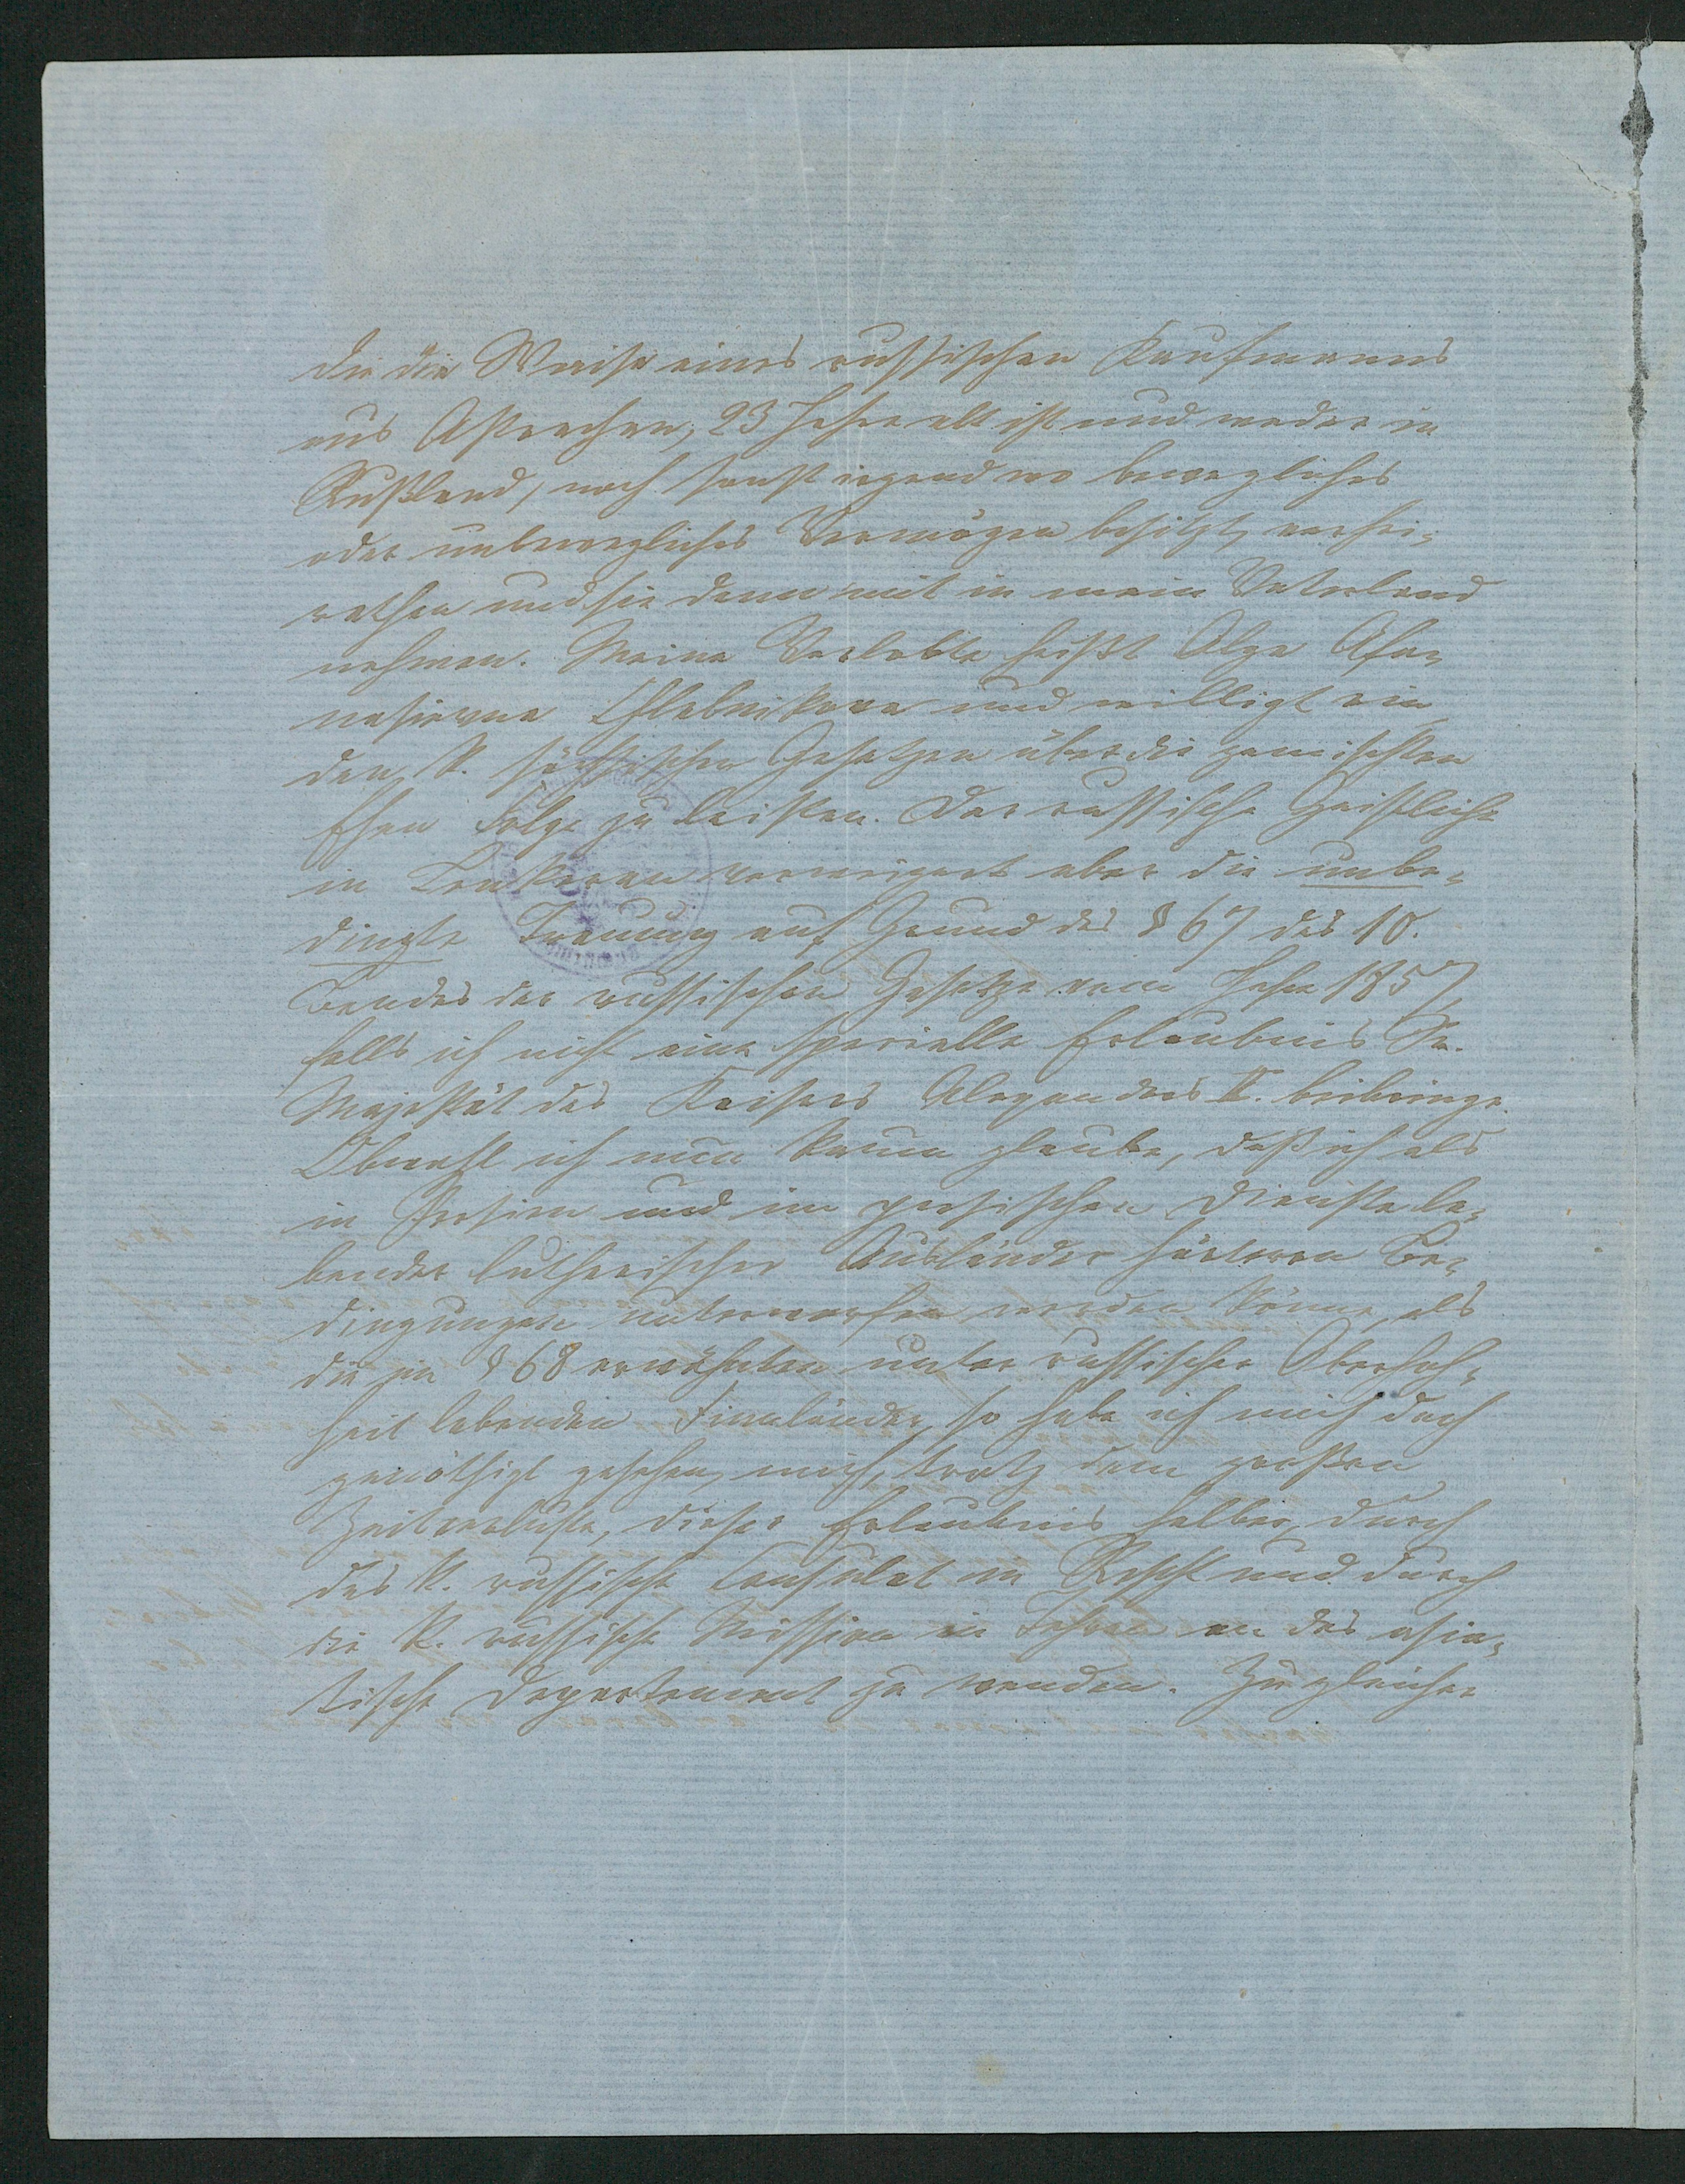 die die Waise eines russischen Kaufmanns
aus Astrachan, 23 Jahre alt ist und weder in
Rußland, noch sonst irgend wo bewegliches
oder unbewegliches Vermögen besitzt, verhei-
rathen und sie dann mit in mein Vaterland
nehmen. Meine Verlobte heißt Olga Afa-
nasiewna Chlebnikowa und willigt ein
den K. sächsischen Gesetzen über die gemischten
Ehen Folge zu leisten. Der russische Geistliche
in Lenkoran verweigert aber die unbe-
dingte Trauung auf Grund des § 67 des 10.
Bandes der russischen Gesetze vom Jahre 1857,
falls ich nicht eine specielle Erlaubnis Sr.
Majestät des Kaisers Alexanders II. beibringe.
Obwohl ich nun kaum glaube, daß ich als
in Persien und im persischen Dienste le-
bender lutherischer Ausländer härteren Be-
dingungen unterworfen werden könne, als
die in § 68 erwähnten unter russischer Oberho-
heit lebenden Finnländer, so habe ich mich doch
genöthigt gesehen, mich, trotz dem großen
Zeitverluste, dieser Erlaubnis halber, durch
das K. russische Consulat in Rescht und durch
die K. russische Mission in Tehran an das asia-
tische Departement zu wenden. Zu gleicher